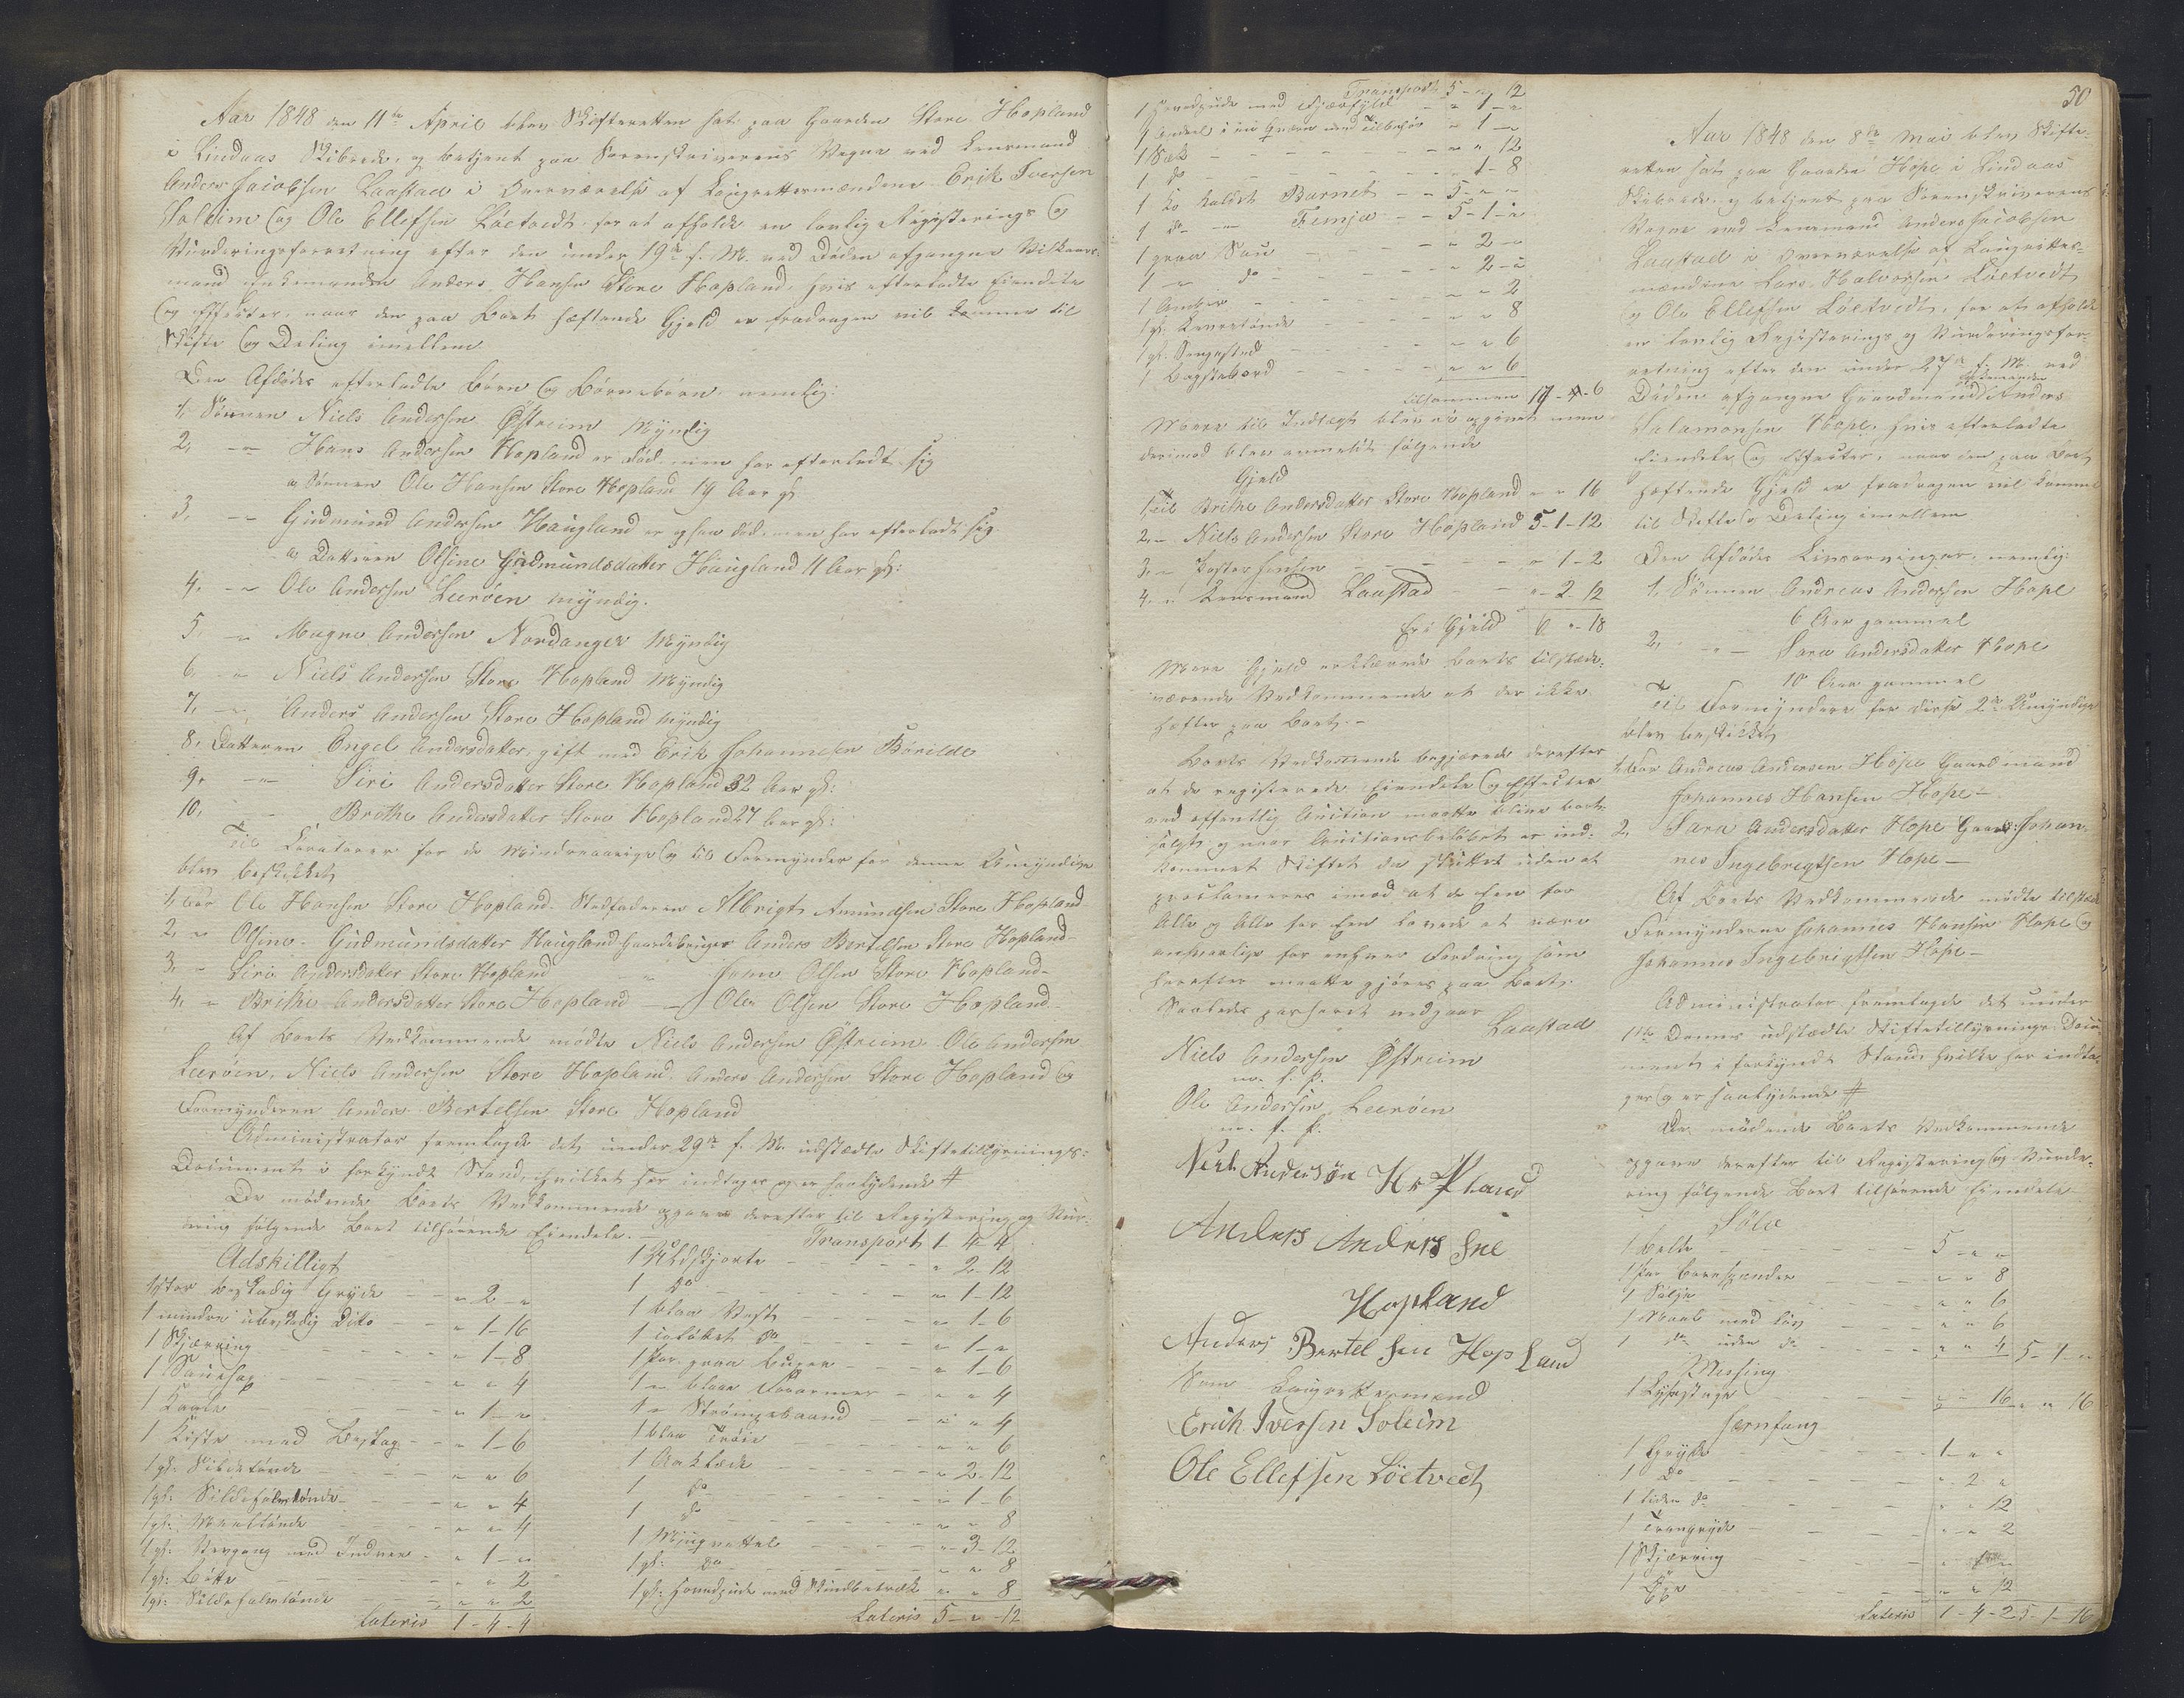 Aar 1848 den 11te April blev Skifteretten sat paa Gaarden Store Hopland
i Lindaas Skibrede, og betjent paa Sorenskriverens Vegne ved Lensmand
Anders Jacobsen Laastad i Overværelse af Laugrettesmændene Erik Iversen
Soleim og Ole Ellefsen Löetvedt for at afholde en lovlig Registrerings og
Vurderingsforretning efter den under 19de f. M. ved Döden afgangne Vilkaars-
mand Enkemanden Anders Hansen Store Hopland, hvis efterladte Eiendele
og Effecter, naar den paa Boet hæftende Gjeld er fradragen vil komme til
Skifte og Deling imellem
Den Afdödes efterladte Börn og Börnebörn, nemlig:
1, Sönnen Niels Andersen Östreim Myndig
2, -"- Hans Andersen Hopland er död men har efterladt sig
a Sönnen Ole Hansen Store Hopland 19 Aar gl:
3, -"- Gudmund Andersen Haugland er ogsaa död men har efterladt sig
a, Datteren Olsine Gudmundsdatter Haugland 11 Aar gl:
4, -"- Ole Andersen Leeröen myndig.
5, -"- Magne Andersen Nordanger Myndig
6, -"- Niels Andersen Store Hopland Myndig
7, -"- Anders Andersen Store Hopland Myndig
8, Datteren Engel Andersdatter, gift med Erik Johannesen Börilde
9, -"- Siri Andersdatter Store Hopland 32 Aar gl:
10, - Brethe Andersdatter Store Hopland 27 Aar gl:
Til Curatorer for de Mindreaarige og til Formynder for denne Umyndige
blev beskikket
1, for Ole Hansen Store Hopland Stedfaderen Albrigt Amundsen Store Hopland
2, " Olsine Gudmundsdatter Haugland Gaardebruger Anders Bertelsen Store Hopland
3, " Siri Andersdatter Store Hopland " Olsen Store Hopland
4, " Brithe Andersdatter Store Hopland - Ole Olsen Store Hopland
Af Boets Vedkommende mödte Niels Andersen Östreim Ole Andersen
Leeröen, Niels Andersen Store Hopland Anders Andersen Store Hopland og
Formynderen Anders Bertelsen Store Hopland
Administrator fremlagde det under 29de f. M. udstædte Skiftetillysnings-
Document i forkyndt Stand, hvilket her indtages og er saalydende #
De mödende Boets Vedkommende opgave derefter til Registrering og Vur-
ering fölgende Boet tilhörende Eiendele.
Adskilligt
1 stor bestadig Gryde " 2 "
1 mindre ubestadig Ditto " 1-16
1 Skjærring " 1-8
1 Sauesax " " 4
1 " 1 "
1 Kiste med Beslag " 1-6
1 gl: Sildetönde " " 6
1 gl: " " 4
1 gl: Meeltönde " " 4
1 gl: " 1 "
1 gl: Bötte " " 2
1 gl: " " 2
Lateris 1-4-4
Transport 1-4-4
1 Uldskjorte " 2-12
1 do " 1-12
1 blaa Vest " 1-6
1 do " 1 "
1 Par graa Buxer " 1-6
1 " blaae " " 4
1 " Strömpebaand " " 4
1 blaa Tröie " " 6
1 Aaklæde " 2-12
1 do " 1-6
1 do " " 8
1 " 3-12
1 gl: do " " 8
1 gl: Hovedpude med Skindbetræk " " 8
Lateris 5-"-12
Transport 5-"-12
1 Hovedpude med Fjærfyld " 1 "
1 Andeel i en Qværn med Tilbehör " 1 "
1 Sæk " " 12
1 do " 1-8
1 Ko kaldet Barnet 5 " "
1 do " Femja 5-1-"
1 graa Sau " 2 "
1 " do " 2 "
1 Anker " " 2
1 gl: " " 8
1 gl: Sengested " " 6
1 Bagstebord " " 6
tilsammen 17-4-6
Mere til Indtægt blev ei opgivet men
derimod blev anmeldt fölgende
Gjeld
1, til Brithe Andersdatter Store Hopland " " 16
2, " Niels Andersen Store Hopland 5-1-12
3, " " 1-2
4, " Lensmand Laastad " 2-12
Er i Gjeld 6 "-18
Mere Gjeld erklærede Boets tilstæde-
værende Vedkommende at der ikke
hefter paa Boet.-
Boets Vedkommende begjærede derefter
at de registrerede Eiendele og Effecter
ved offentlig Auction maatte blive bort-
solgt og naar Auctionsbelöbet er ind-
kommet Skiftet da sluttet uden at
proclameres imod at de Een for
Alle og Alle for Een lovede at være
ansvarlige for enhver Fordring som
herefter maatte gjöres paa Boet.
Saaledes passeret vidgaaer
Laastad
Niels Andersen Östreim
m. f. P.
Ole Andersen Leeröen
m. f. P.
Nels Andersön Hopland
Anders Anders sne
Hopland
Anders Bertel sen Hopland
Som Laugrettesmænd
Erick Iversen Soleim
Ole Ellefsen Löetvedt
50
Aar 1848 den 8de Mai blev Skifte-
retten sat paa Gaarden Hope i Lindaas
Skibrede og betjent paa Sorenskriverens
Vegne ved Lensmand Anders Jacobsen
Laastad i Overværelse af Laugrettes-
mændene Lars Halvorsen Löetvedt
og Ole Ellefsen Löetvedt, for at afholde
en lovlig Registrerings og Vurderingsfor-
retning efter den under 27de f. M. ved
Döden afgangne Gaardmand Enkemanden Anders
Salamonsen Hope, hvis efterladte
Eiendele og Effecter, naar den paa Boet
hæftende Gjeld er fradragen vil komme
til Skifte og Deling imellem
Den Afdödes Livsarvinger, nemlig:
1, Sönnen Andreas Andersen Hope
6 Aar gammel
2, -"- Sara Andersdatter Hope
10 Aar gammel
Til Formyndere for disse 2de Umyndige
blev beskikket
1, for Andreas Andersen Hope Gaardmand
Johannes Hansen Hope-
2, Sara Andersdatter Hope Gaard: Johan-
nes Ingebrigtsen Hope-
Af Boets Vedkommende mödte tilstæde
Formynderne Johannes Hansen Hope og
Johannes Ingebrigtsen Hope-
Administrator fremlagde det under
1ste Dennes udstædte Skiftetillysnings Docu-
ment i forkyndt Stand, hvilket her indta-
ges og er saalydende #
De mödende Boets Vedkommende
opgave derefter til Registrering og Vurde-
ring fölgende Boet tilhörende Eiendele
Sölv
1 Belte 5 " "
1 Par " " 8
1 Sölje " " 6
1 med Löv " " 6
1 do uden do " " 4 5-1-"
Messing
1 Lysestage " " 16 " " 16
Jernfang
1 Gryde 1 " "
1 Do " 2 "
1 liden do " " 12
1 " " 2
1 Skjærring
1 Öxe " " 12
Lateris 1-4-2 5-1-16